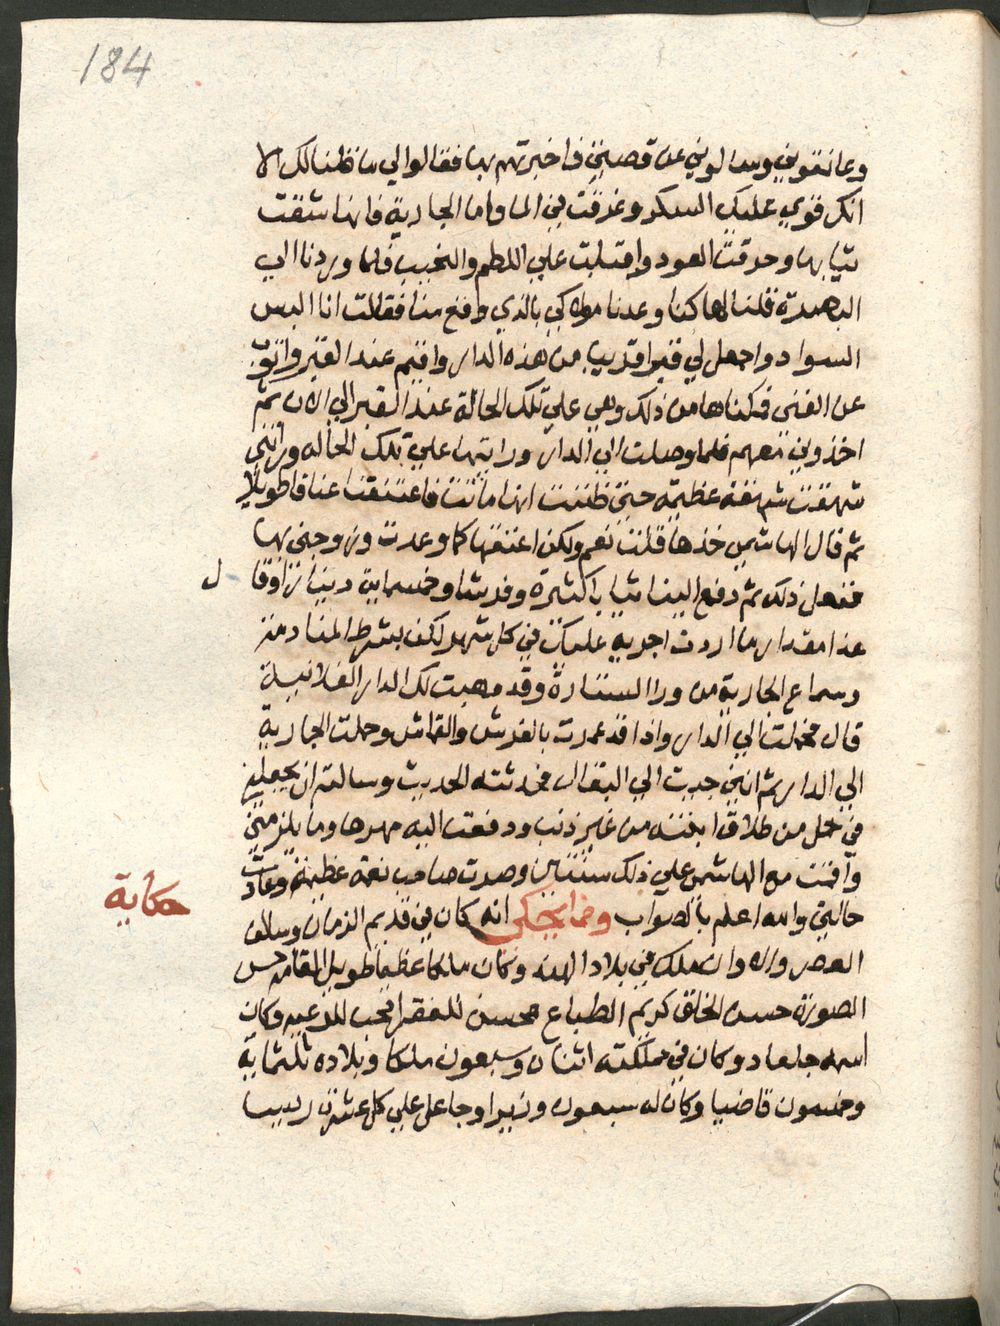 184
وعانقوني وسالوني عن قصتي فاخبرتهم بها فقالوا لي ما ظننا لك الا
انك قوي عليك السكر وغرقت في الما واما الجارية فانها شقت
ثيابها وحرقت العود واقبلت علي اللطم والنحيب فلما وردنا الي
البصرة قلنا لها كنا وعدنا مولاكي بالذي وقع منا فقالت انا البس
السواد واجعل لي قبرا قريبا من هذه الدار واقيم عند القبر واتوب
عن الغنى فمكناها من ذلك وهي علي تلك الحالة عند القبر الي الان ثم
اخذوني معهم فلما وصلت الي الدار ورايتها علي تلك الحاله وراتني
شهقت شهقة عظيمة حتي ظننت انها ماتت فاعتنقنا عناقا طويلا
ثم قال الهاشمي خذها قلت نعم ولكن اعتقها كما وعدت وزوجني بها
ففعل ذلك ثم دفع الينا ثيابا كثيرة وفرشا وخمسماية دينارا وقال
هذا مقدار ما اردت اجريه عليك في كل شهر لكن بشرط المنادمة
وسماع الجارية من ورا الستارة وقد وهبت لك الدار الفلانية
قال فدخلت الي الدار واذا قد عمرت بالفرش والقماش وحملت الجارية
الي الدار ثم انني جيت الي البقال فحدثته الحديث وسالته ان يجعلني
في حل من طلاق ابنته من غير ذنب ودفعت اليه مهرها وما يلزمني
واقمت مع الهاشمي علي ذلك سنتين وصرت صاحب نعمة عظيمة وعادت
حالتي والله اعلم بالصواب ومما يحكي انه كان في قديم الزمان وسالف
حكاية
العصر والاوان ملك في بلاد الهند وكان ملكا عظيما طويل القامة حسن
الصورة حسن الخلق كريم الطباع محسن للفقرا محب للرعيه وكان
اسمه جلعاد وكان في مملكته اثنان وسبعون ملكا وبلاده ثلثماية
وخمسون قاضيا وكان له سبعون وزيرا وجاعل علي كل عشرة رييسا